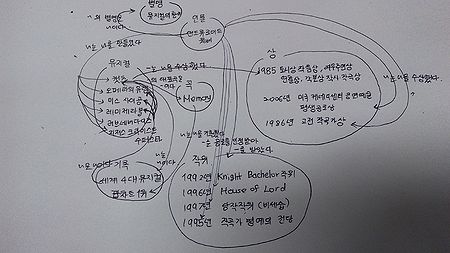 별명
뮤지컬의 황제
~의 별명은
~이다
인물
앤드류 로이드
웨버
~는 ~를 만들었다
뮤지컬
캣츠
오페라의 유령
미스 사이공
레미제라블
러브 네버 다이즈
지저스 크라이스트
수퍼스타
~는 ~를 수상했다
~의 대표곡은
~이다
곡
Memory
상
1985 토니상 작품상, 여우주연상
연출상, 각본상, 작사·작곡상
2006년 미국 케네디센터 공연예술
평생공로상
1986년 고전 작곡가상
~는 ~를 수상했다.
~는
~이다
기록
세계 4대 뮤지컬
판차트 1위
~는 ~를 가졌다
~는 공로를 인정받아
~를 받았다.
직위
1992년 Knight Bachelor 작위
1996년 House of Lord
1997년 남작작위 (비세습)
1995년 작곡가 명예의 전당